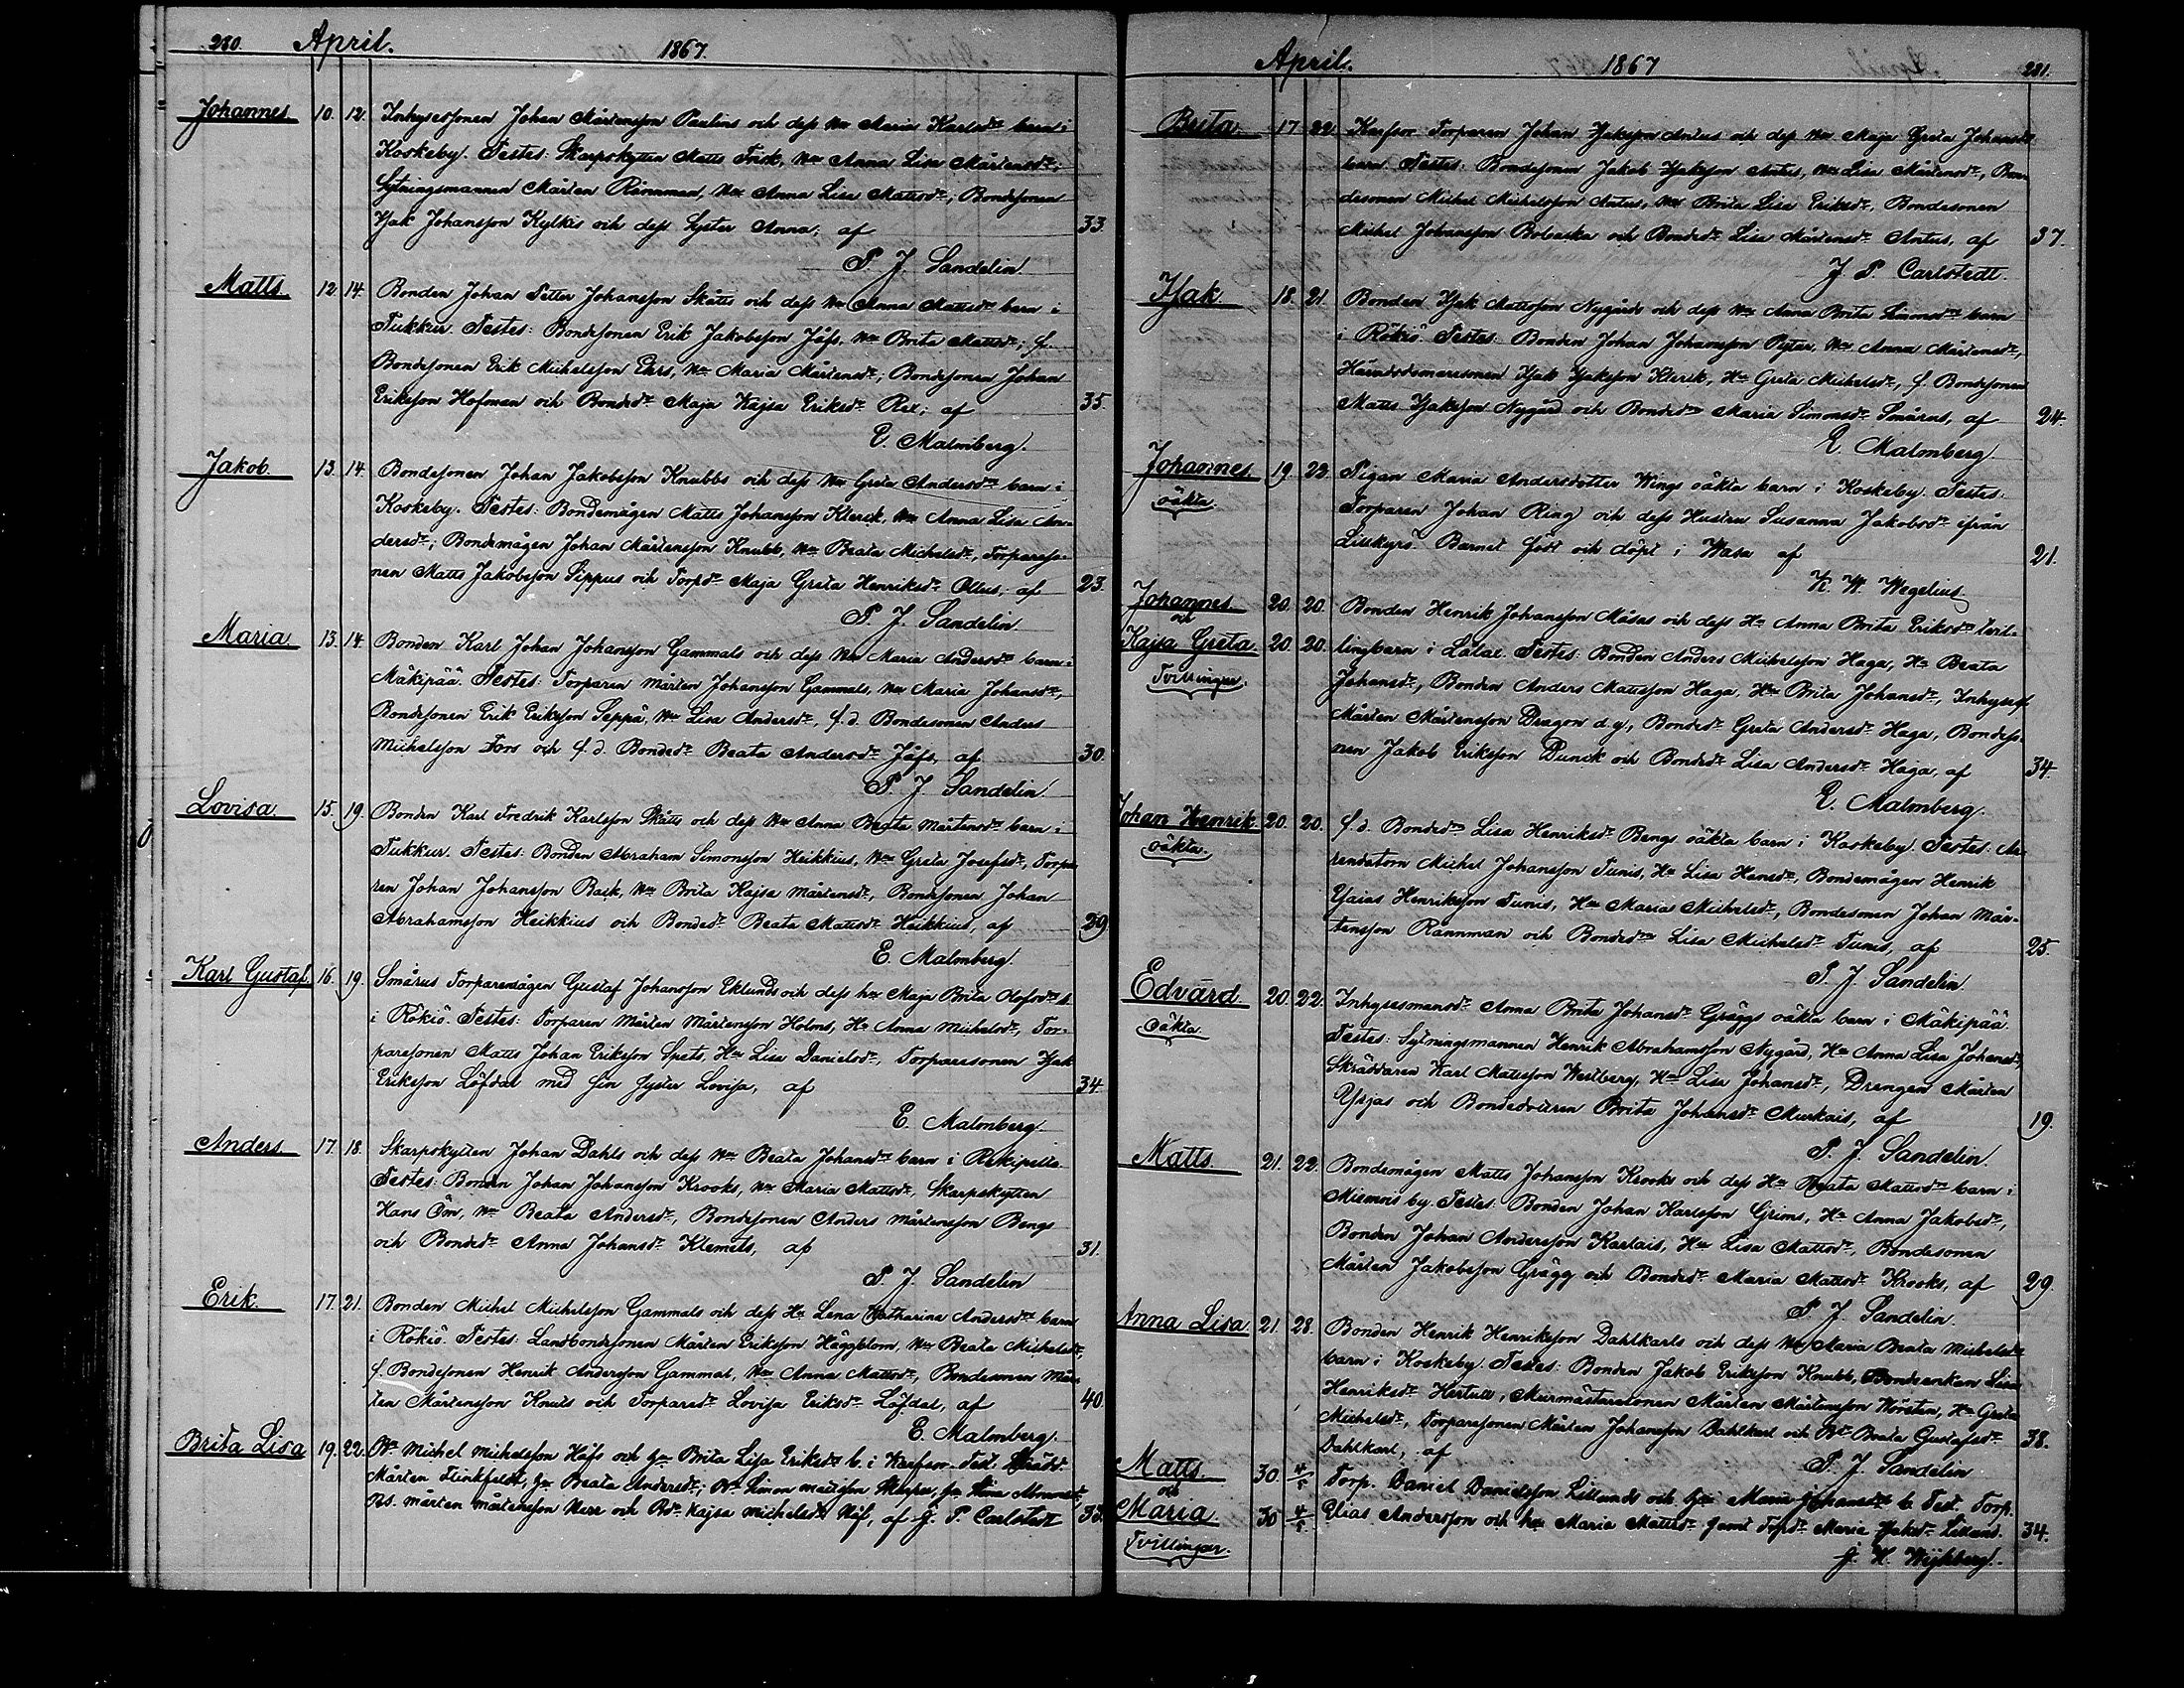 280. April. 1867.
Johannes 10. 12. Inhysessonen Johan Mårtensson Paulins och dess Hu Maria Karlsdr barn i
Koskeby. Testes: Skarpskytten Matts Frisk, Hu Anna Lisa Mårtensdr;
Sytningsmannen Mårten Rännman, Hu Anna Lisa Mattsdr; Bondesonen
Isak Johansson Kylkis och dess Syster Anna, af 33.
P. J. Sandelin.
Matts 12. 14. Bonden Johan Petter Johansson Skätts och dess Hu Anna Mattsdr barn i
Tukkur. Testes: Bondesonen Erik Jakobsson Jåfs, Hu Brita Mattsdr; f.
Bondesonen Erik Michelsson Ehrs, Hu Maria Mårtensdr; Bondesonen Johan
Eriksson Hofman och Bondedr Maja Kajsa Eriksdr Rex; af 35.
E. Malmberg.
Jakob. 13. 14. Bondesonen Johan Jakobsson Knubbs och dess Hu Greta Andersdr barn i
Koskeby. Testes: Bondemågen Matts Johansson Klerck, Hu Anna Lisa An-
dersdr; Bondemågen Johan Mårtensson Knubb, Hu Beata Michelsdr, Torpareso-
nen Matts Jakobsson Sippus och Torpdr Maja Greta Henriksdr Ollus; af 23.
P. J. Sandelin.
Maria. 13. 14. Bonden Karl Johan Johansson Gammals och dess Hu Maria Andersdr barn i
Mäkipää. Testes: Torparen Mårten Johansson Gammals, Hu Maria Johansdr,
Bondesonen Erik Eriksson Seppä, Hu Lisa Andersdr, f.d. Bondesonen Anders
Michelsson Fors och f.d. Bondedr Beata Andersdr Jåfs, af 30.
P. J. Sandelin.
Lovisa. 15. 19. Bonden Karl Fredrik Karlsson Skätts och dess Hu Anna Beata Mårtensdr barn i
Tukkur. Testes: Bonden Abraham Simonsson Heikkius, Hu Greta Josefsdr, Torpa-
ren Johan Johansson Back, Hu Brita Kajsa Mårtensdr, Bondesonen Johan
Abrahamsson Heikkius och Bondedr Beata Mattsdr Heikkius, af 29
E. Malmberg.
Karl Gustaf. 16. 19. Smårus Torparemågen Gustaf Johansson Eklunds och dess hu Maja Brita Olofsdr b.
i Rökiö. Testes: Torparen Mårten Mårtensson Holms, Hu Anna Michelsdr, Tor-
paresonen Matts Johan Eriksson Spets, Hu Lisa Danielsdr, Torparesonen Isak
Eriksson Löfdal med sin syster Lovisa, af 34.
E. Malmberg.
Anders. 17. 18. Skarpskytten Johan Dahls och dess Hu Beata Johansdr barn i Rekipelto.
Testes: Bonden Johan Johansson Krooks, Hu Maria Mattsdr, Skarpskytten
Hans Öm, Hu Beata Andersdr, Bondesonen Anders Mårtensson Bengs
och Bondedr Anna Johansdr Klemets, af 31.
P. J. Sandelin
Erik. 17. 21. Bonden Michel Michelsson Gammals och dess Hu Lena Catharina Andersdr barn
i Rökiö. Testes: Landbondesonen Mårten Eriksson Häggblom, Hu Beata Michelsdr,
f. Bondesonen Henrik Andersson Gammal, Hu Anna Mattsdr, Bondesonen Mår-
ten Mårtensson Knuts och Torparedr Lovisa Eriksdr Löfdal, af 40.
E. Malmberg.
Brita Lisa 19. 22. Bn Michel Michelsson Håfs och hu Brita Lisa Eriksdr b. i Karfsor. Test. Skrädd.
Mårten Flinkfeldt, hu Beata Andersdr; Bn Simon Mattsson hu Lina
Bs. Mårten Mårtensson och Bdr Kajsa Michelsdr af J. P. Carlstedt 33.
April. 1867 281.
Brita 17 22 Karfsor Torparen Johan Isaksson Antus och dess Hu Maja Greta Johansdr
barn. Testes: Bondesonen Jakob Isaksson Antus, Hu Lisa Mårtensdr, Bon-
desonen Michel Michelsson Antus, Hu Brita Lisa Eriksdr, Bondesonen
Michel Johansson Bobacka och Bondedr Lisa Mårtensdr Antus, af 37.
J. P. Carlstedt.
Isak. 18. 21. Bonden Isak Mattsson Nygårds och dess Hu Anna Brita Simonsdr barn
i Rökiö. Testes: Bonden Johan Johansson Pyter, Hu Anna Mårtensdr,
Häradsdomaresonen Isak Isaksson Klerik, Hu Greta Michelsdr, f. Bondesonen
Matts Isaksson Nygård och Bondedr Maria Simonsdr Smårus, af 24.
E. Malmberg
Johannes 19. 22. Pigan Maria Andersdotter Wings oäkta barn i Koskeby. Testes:
oäkta. Torparen Johan Ring och dess Hustru Susanna Jakobsdr ifrån
Lillkyro. Barnet född och döpt i Wasa af 21.
K. W. Wegelius
Johannes 20. 20. Bonden Henrik Johansson Måsas och dess Hu Anna Brita Eriksdr tvil-
och
Kajsa Greta. 20. 20. lingbarn i Lålax. Testes: Bonden Anders Michelsson Haga, Hu Beata
Tvillingar. Johansdr, Bonden Anders Mattsson Haga, Hu Brita Johansdr, Inhyses
Mårten Mårtensson Dragon d.y., Bondedr Greta Andersdr Haga, Bondeso-
nen Jakob Eriksson Dunik och Bondedr Lisa Andersdr Haga, af 34.
E. Malmberg.
Johan Henrik 20. 20. f.d. Bondedr Lisa Henriksdr Bengs oäkta barn i Koskeby. Testes: Ar-
oäkta. rendatorn Michel Johansson Tunis, Hu Lisa Hansdr, Bondemågen Henrik
Esaias Henriksson Tunis, Hu Maria Michelsdr, Bondesonen Johan Mår-
tensson Rännman och Bondedr Lisa Michelsdr Tunis, af 25.
P. J. Sandelin.
Edvärd. 20. 22. Inhysesmansdr Anna Brita Johansdr Gräggs oäkta barn i Mäkipää.
oäkta. Testes: Sytningsmannen Henrik Abrahamsson Nygård, Hu Anna Lisa Johansdr,
Skräddaren Karl Mattsson Westberg, Hu Lisa Johansdr, Drengen Mårten
Yrjas och Bondedottren Brita Johansdr Murkais, af 19.
P. J. Sandelin.
Matts. 21. 22. Bondemågen Matts Johansson Krooks och dess Hu Beata Mattsdr barn i
Miemois by. Testes: Bonden Johan Karlsson Grims, Hu Anna Jakobsdr,
Bonden Johan Andersson Karlais, Hu Lisa Mattsdr, Bondesonen
Mårten Jakobsson Grägg och Bondedr Maria Mattsdr Krooks, af 29.
P. J. Sandelin.
Anna Lisa. 21. 28. Bonden Henrik Henriksson Dahlkarls och dess Hu Maria Beata Michelsdr
barn i Koskeby. Testes: Bonden Jakob Eriksson Knubb, Bondeenkan Lisa
Henriksdr Hertull, Murmästaresonen Mårten Mårtensson Wörsten, Hu Greta
Michelsdr, Torparesonen Mårten Johansson Dahlkarl och Bdr Beata Gustafsdr 38.
Dahlkarl, af
P. J. Sandelin
Matts 30. 4/5 Torp. Daniel Danielsson Lillunds och hu Maria Johansdr b. Test. Torp.
och
Maria 30 4/5 Elias Andersson och hu Maria Mattsdr samt Torpdr Maria Isaksdr Lillund. 34.
Tvillingar.
J. H. Wijkberg.